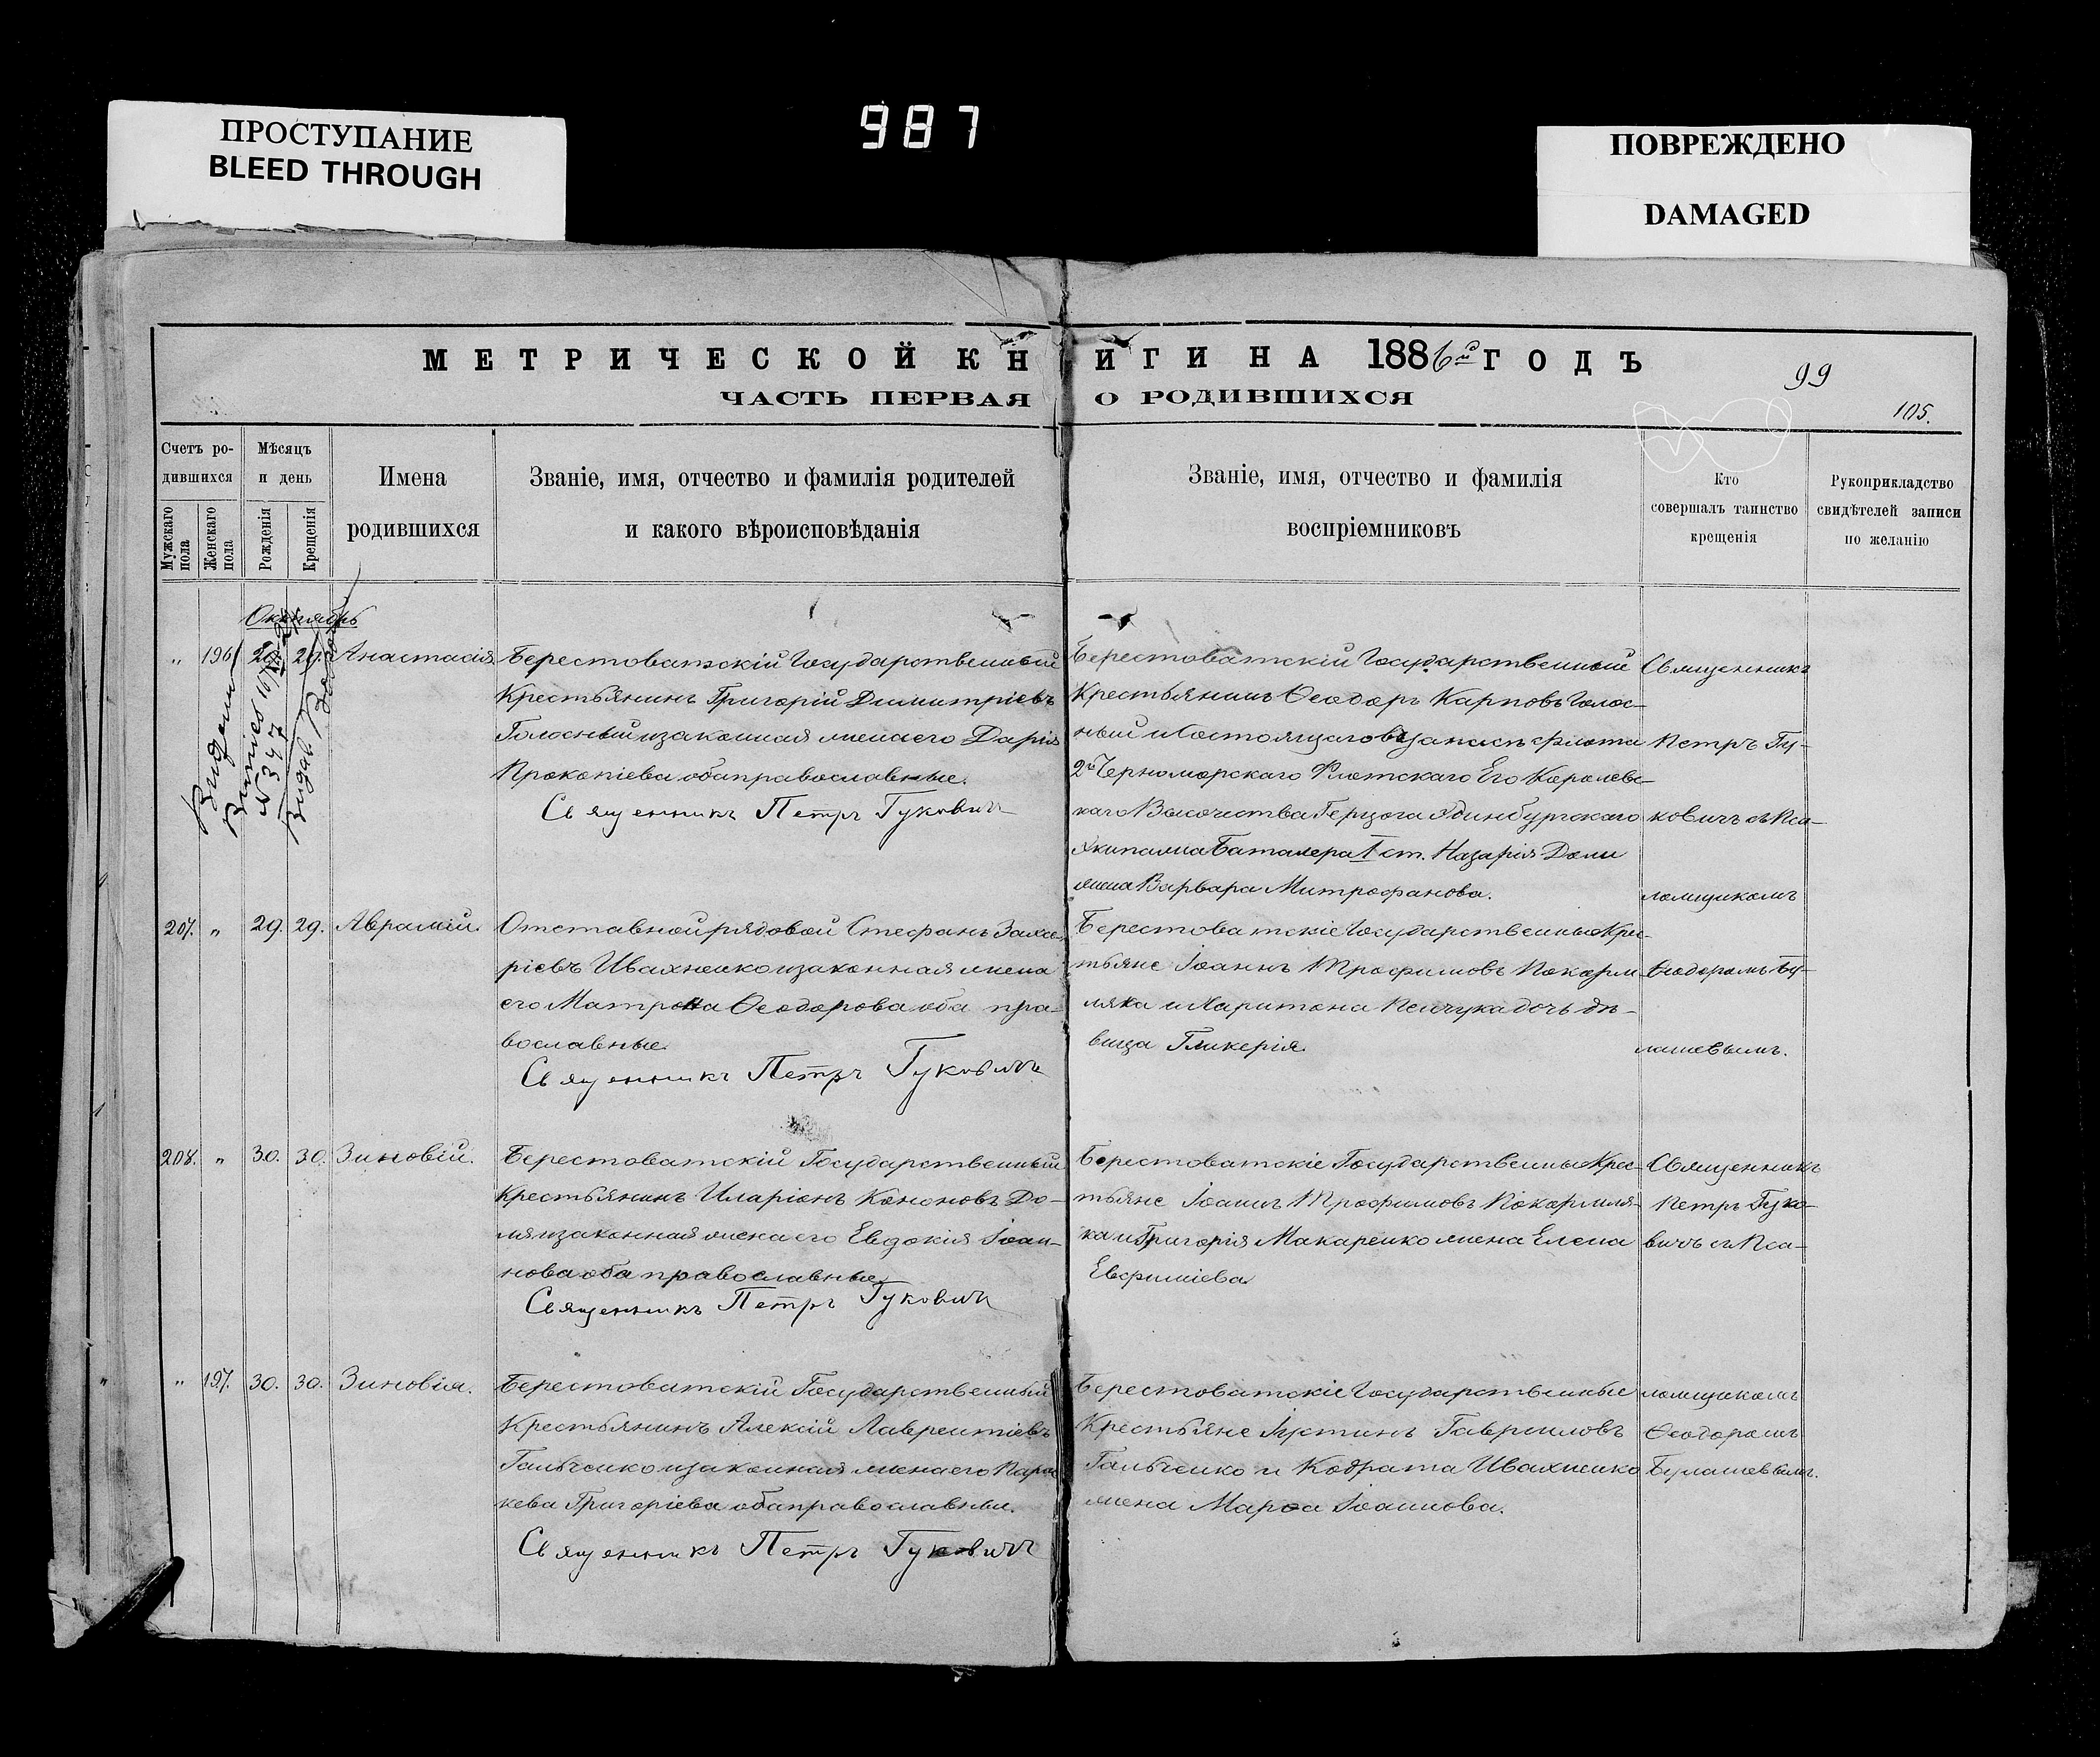 ПРОСТУПАНИЕ
BLEED THROUGH
987
ПОВРЕЖДЕНО
DAMAGED
МЕТРИЧЕСКОЙ КНИГИ НА 1886й ГОДЪ
ЧАСТЬ ПЕРВАЯ О РОДИВШИХСЯ
99
105.
Счетъ ро-
дившихся
Мужскаго пола
Женскаго пола
Мѣсяцъ
и день
Рожденія
Крещенія
Имена
родившихся
Званіе, имя, отчество и фамилія родителей
и какого вѣроисповѣданія
Званіе, имя, отчество и фамилія
воспріемниковъ
Кто
совершалъ таинство
крещенія
Рукоприкладство
свидѣтелей записи
по желанію
Октябрь
" 196 29. Анастасія
Берестоватскій Государственный
Крестьянинъ Григорій Димитріевъ
Голосный и законная жена его Дарія
Прокопіева оба православные.
Священникъ Петръ Гуковичъ
Берестоватскій Государственный
Крестьянинъ Ѳеодоръ Карповъ Голос-
ный и Состоящаго въ Запасѣ флота
2го Черноморскаго Флотскаго Его Королевс-
каго Высочества Герцога Эдинбургскаго
Экипажа Баталера I ст. Назарія Доли
жена Варвара Митрофанова.
Священникъ
Петръ Гу-
ковичъ съ Пса-
ломщикомъ
207. " 29. 29. Аврамій.
Отставной рядовой Стефанъ Заха-
ріевъ Ивахненко и законная жена
его Матрона Ѳеодорова оба пра-
вославные.
Священникъ Петръ Гуковичъ
Берестоватскіе Государственные Крес-
тьяне Іоаннъ Трофимовъ Покорм-
ляка и Харитона дочь дѣ-
вица Гликерія.
Ѳеодоромъ Бу-
лашевымъ.
208. " 30. 30. Зиновій.
Берестоватскій Государственный
Крестьянинъ Иларіонъ Кононовъ До-
ля и законная жена его Евдокія Іоан-
нова оба православные.
Священникъ Петръ Гуковичъ
Берестоватскіе Государственные Крес-
тьяне Іоаннъ Трофимовъ Покормля-
ка и Григорія Макаренко жена Елена
Евфиміева.
Священникъ
Петръ Гуко-
вичъ съ Пса-
" 197. 30. 30. Зиновія.
Берестоватскій Государственный
Крестьянинъ Алексій Лаврентіевъ
Гальченко и законная жена его Парас
кева Григоріева оба православные.
Священникъ Петръ Гуковичъ
Берестоватскіе Государственные
Крестьяне Іустинъ Гавриловъ
Гальченко и Кодрата Ивахненко
жена Марѳа Іоаннова.
ломщикомъ
Ѳеодоромъ
Булашевымъ.